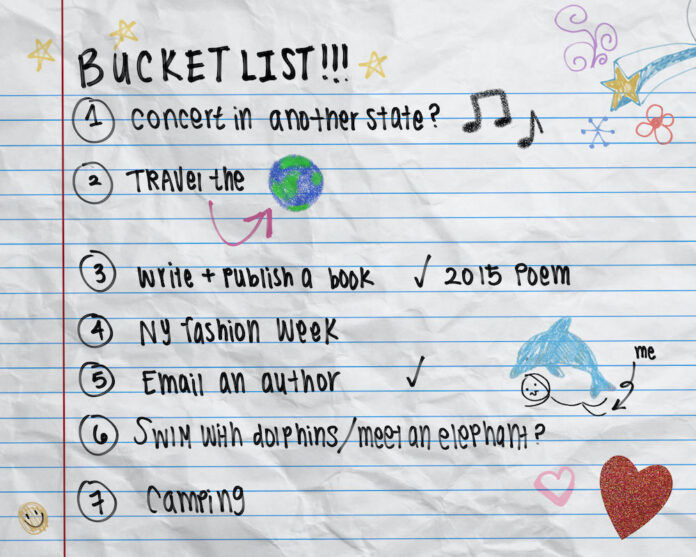 BUCKET LIST!!!
1 concert in another state?
2 TRAVel the
3 write + publish a book ✓ 2015 poem
4 NY fashion week
5 Email an author ✓
me
6 SWIM with dolphins/meet an elephant?
7 camping